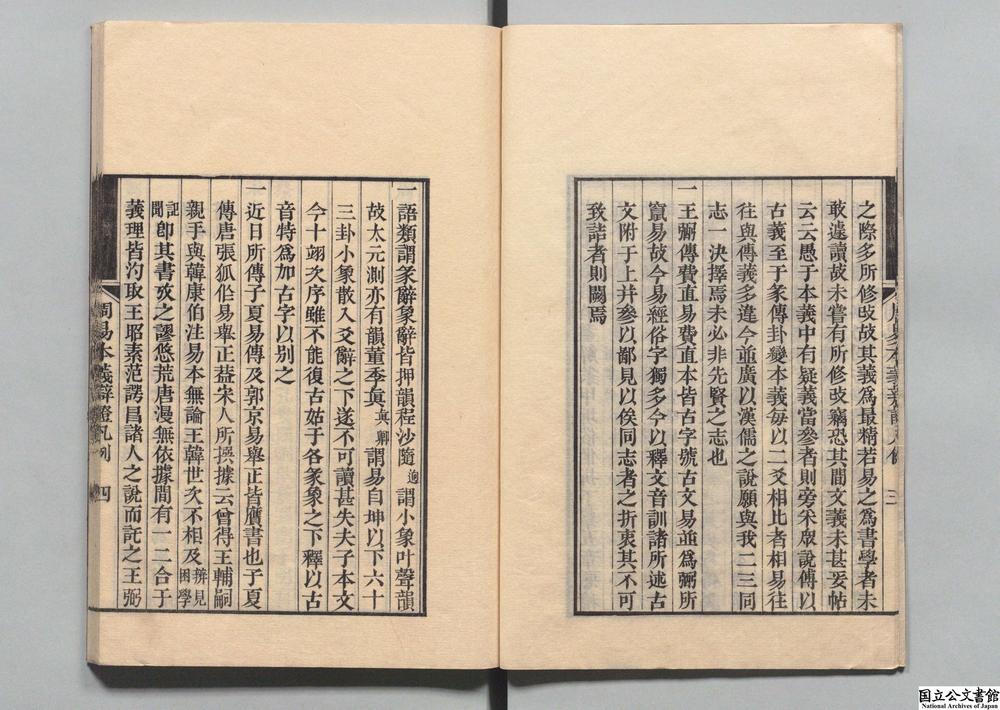 之際多所修攺故其義爲最精若易之爲書學者未
敢遽讀故未嘗有所修攺竊恐其間文義未甚妥帖
云云愚于本義中有疑義當參者則旁釆眾說傳以
古義至于彖傳卦變本義每以二爻相比者相易往
往與傳義多違今並廣以漢儒之說願與我二三同
志一決擇焉未必非先賢之志也
一王弼傳費直易費直本皆古字號古文易並爲弼所
竄易故今易經俗字獨多今以釋文音訓諸所述古
文附于上并參以鄙見以俟同志者之折衷其不可
致詰者則闕焉
三
一語類謂彖辭象辭皆押韻程沙隨迥謂小象叶聲韻
故太元測亦有韻董季眞眞卿謂易自坤以下六十
三卦小象散入爻辭之下遂不可讀甚失夫子本文
今十翊次序雖不能復古姑于各彖象之下釋以古
音特爲加古字以别之
一近日所傳子夏易傳及郭京易舉正皆贋書也子夏
傳唐張狐作易舉正葢宋人所撰據云曾得王輔嗣
親手與韓康伯注易本無論王韓世次不相及辨見困學
記聞卽其書攷之謬悠荒唐漫無依據間有一二合于
義理皆汋取王昭素范諤昌諸人之說而託之王弼
周易本義辯證凡例
四
国立公文書館
National Archives of Japan